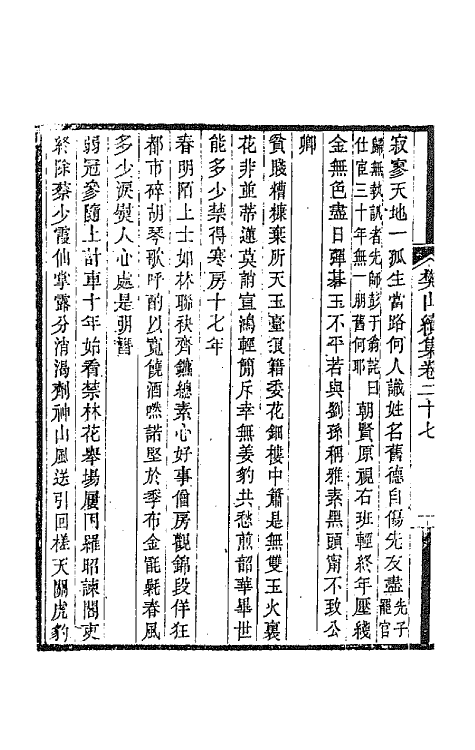 樊山續集卷二十七
寂寥天地一孤生當路何人識姓名舊德自傷先友盡先子罷官
歸無執訊者先師彭于翁詫曰
仕宦三十年無一朋舊何耶朝賢原視右班輕終年壓綫
金無色盡日彈棊玉不平若與劉孫稱雅素黑頭甯不致公
卿
貧賤糟糠棄所天玉臺狼籍委花鈿樓中簫是無雙玉火裏
花非並蒂蓮莫誚宣鴻輕簡斥幸無姜豹共愁煎韶華畢世
能多少禁得寒房十七年
春明陌上士如林聯袂齊鑣總素心好事僧房觀錦段佯狂
都市碎胡琴歌呼酌以寬饒酒然諾堅於季布金寵氍春風
多少淚熨人心處是朝簪
弱冠參隨上計車十年始看禁林花舉場屢困羅昭諫閣吏
終除蔡少霞仙掌露分消渴劑神山風送引回槎天關虎豹